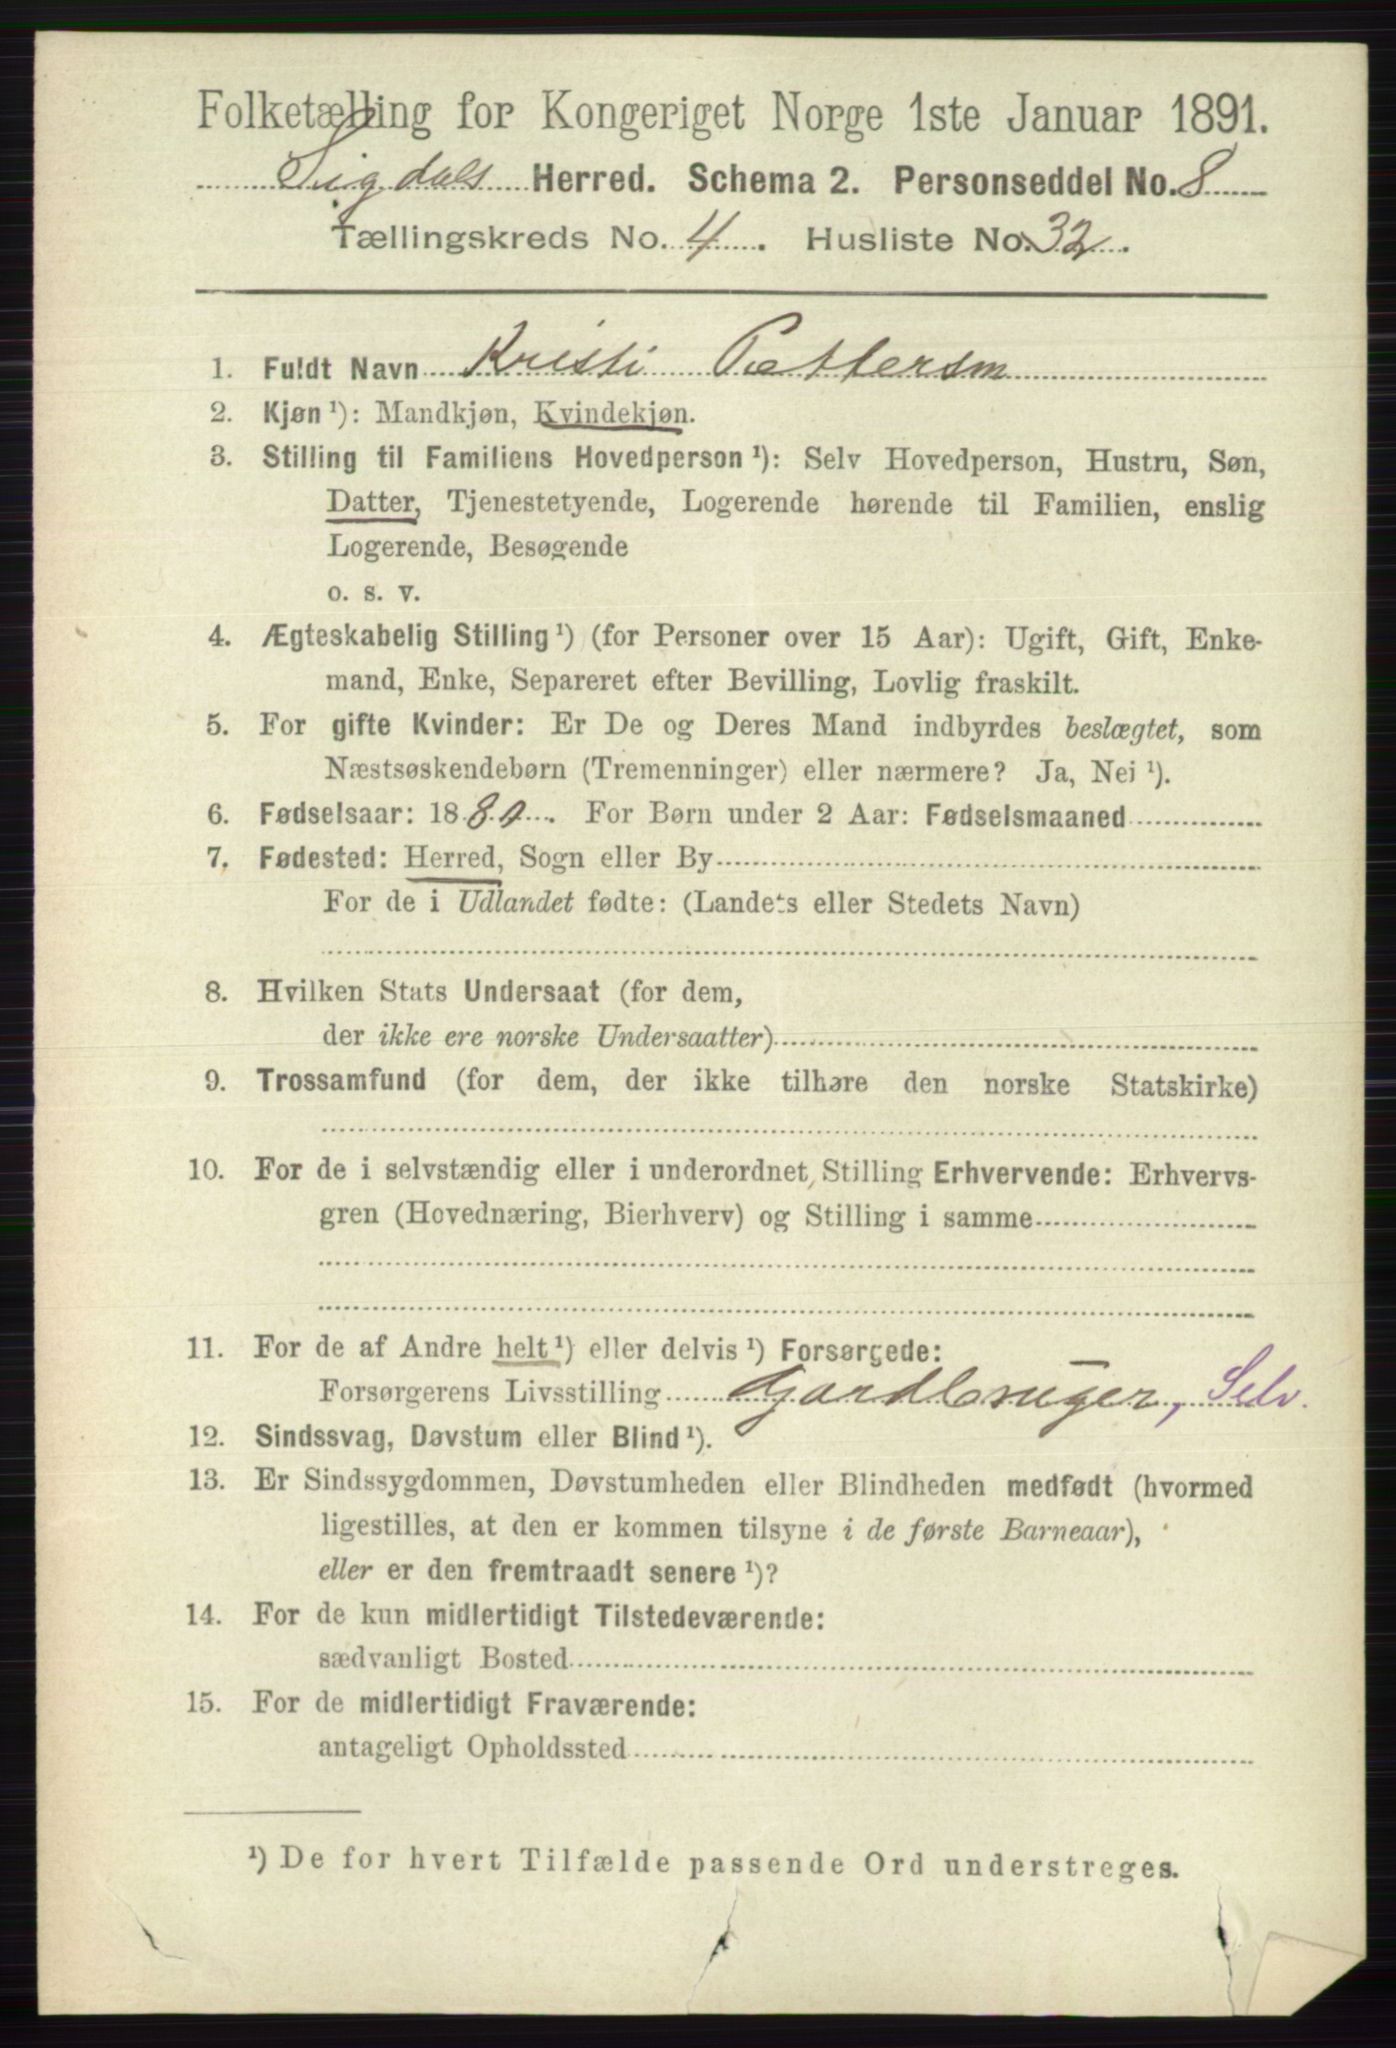 Folketælling for Kongeriget Norge 1ste Januar 1891.
Sigdals Herred. Schema 2. Personseddel No. 8
Tællingskreds No. 4. Husliste No. 32.
1. Fuldt Navn Kristi Pettersen
2. Kjøn ¹): Mandkjøn, Kvindekjøn.
3. Stilling til Familiens Hovedperson ¹): Selv Hovedperson, Hustru, Søn,
Datter, Tjenestetyende, Logerende hørende til Familien, enslig
Logerende, Besøgende
o. s. v.
4. Ægteskabelig Stilling ¹) (for Personer over 15 Aar): Ugift, Gift, Enke-
mand, Enke, Separeret efter Bevilling, Lovlig fraskilt.
5. For gifte Kvinder: Er De og Deres Mand indbyrdes beslægtet, som
Næstsøskendebørn (Tremenninger) eller nærmere? Ja, Nei ¹).
6. Fødselsaar: 1880. For Børn under 2 Aar: Fødselsmaaned
7. Fødested: Herred, Sogn eller By
For de i Udlandet fødte: (Landets eller Stedets Navn)
8. Hvilken Stats Undersaat (for dem,
der ikke ere norske Undersaatter)
9. Trossamfund (for dem, der ikke tilhøre den norske Statskirke)
10. For de i selvstændig eller i underordnet Stilling Erhvervende: Erhvervs-
gren (Hovednæring, Bierhverv) og Stilling i samme
11. For de af Andre helt ¹) eller delvis ¹) Forsørgede:
Forsørgerens Livsstilling Gardbruger, Selv.
12. Sindssvag, Døvstum eller Blind ¹).
13. Er Sindssygdommen, Døvstumheden eller Blindheden medfødt (hvormed
ligestilles, at den er kommen tilsyne i de første Barneaar),
eller er den fremtraadt senere ¹)?
14. For de kun midlertidigt Tilstedeværende:
sædvanligt Bosted
15. For de midlertidigt Fraværende:
antageligt Opholdssted
¹) De for hvert Tilfælde passende Ord understreges.